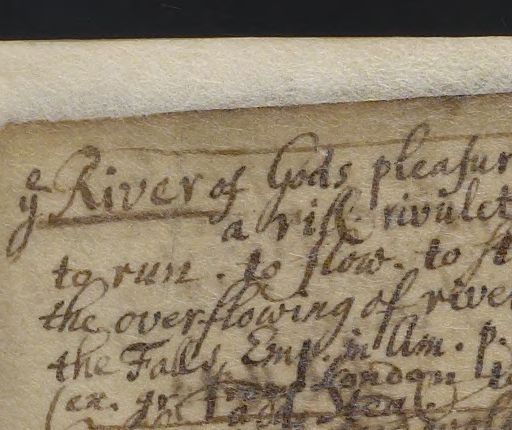 yͤ River of Gods pleasur
a rill. rivulet
to run. to flow. to st
the overflowing of river
the Falls, Emp. in Am. p.
(ex. gr. London